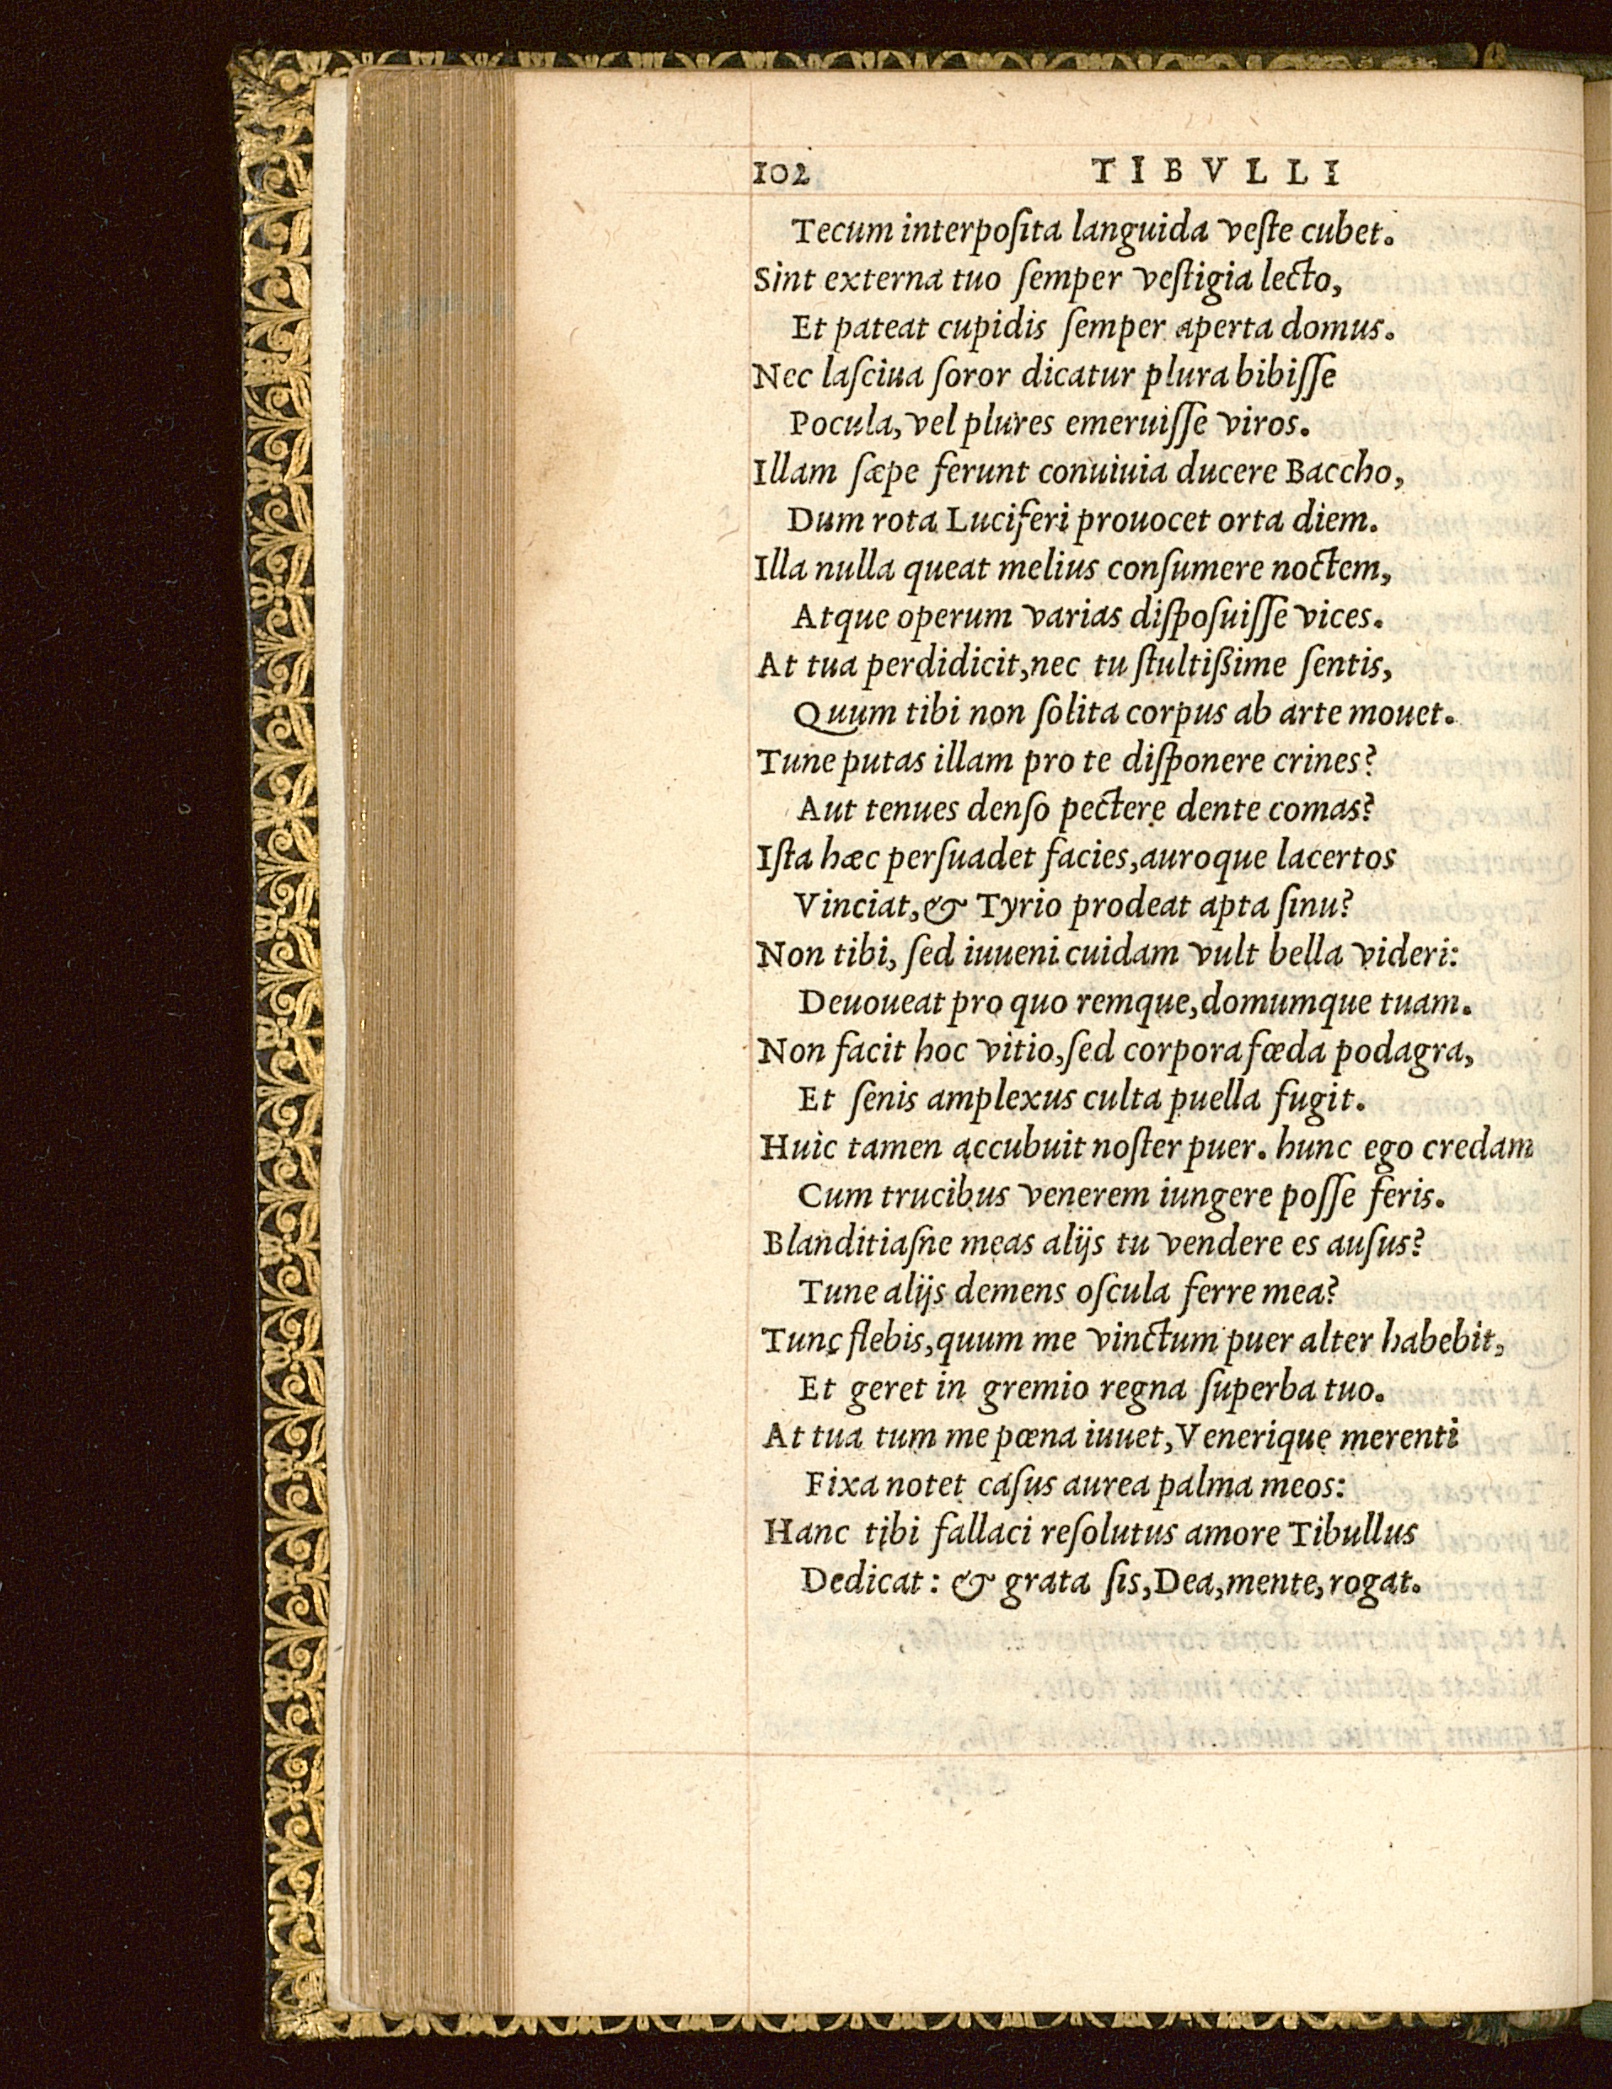 102 TIBVLLI
Tecum interpoſita languida veſte cubet.
Sint externa tuo ſemper veſtigia lecto,
Et pateat cupidis ſemper aperta domus.
Nec laſciua ſoror dicatur plura bibiſſe
Pocula, vel plures emeruiſſe viros.
Illam ſæpe ferunt conuiuia ducere Baccho,
Dum rota Luciferi prouocet orta diem.
Illa nulla queat melius conſumere noctem,
Atque operum varias diſpoſuiſſe vices.
At tua perdidicit, nec tu ſtultißime ſentis,
Quum tibi non ſolita corpus ab arte mouet.
Tune putas illam pro te diſponere crines?
Aut tenues denſo pectere dente comas?
Iſta hæc perſuadet facies, auroque lacertos
Vinciat, & Tyrio prodeat apta ſinu?
Non tibi, ſed iuueni cuidam vult bella videri:
Deuoueat pro quo remque, domumque tuam.
Non facit hoc vitio, ſed corpora fœda podagra,
Et ſenis amplexus culta puella fugit.
Huic tamen accubuit noſter puer. hunc ego credam
Cum trucibus venerem iungere poſſe feris.
Blanditiaſne meas alijs tu vendere es auſus?
Tune alijs demens oſcula ferre mea?
Tunc flebis, quum me vinctum puer alter habebit,
Et geret in gremio regna ſuperba tuo.
At tua tum me pœna iuuet, Venerique merenti
Fixa notet caſus aurea palma meos:
Hanc tibi fallaci reſolutus amore Tibullus
Dedicat: & grata ſis, Dea, mente, rogat.